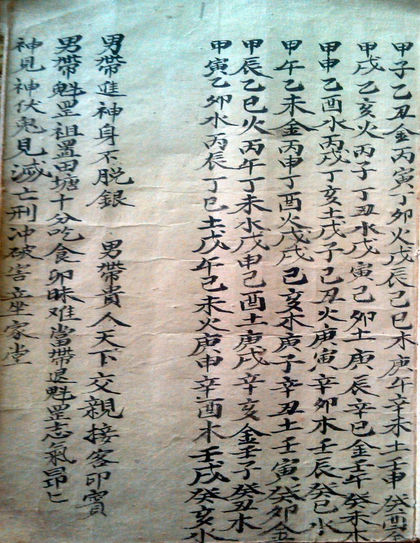 甲子乙丑金丙寅丁卯火戊辰己巳木庚午辛未土壬申癸酉金
甲戌乙亥火丙子丁丑水戊寅己卯土庚辰辛巳金壬午癸未木
甲申乙酉水丙戌丁亥土戊子己丑火庚寅辛卯木壬辰癸巳水
甲午乙未金丙申丁酉火戊戌己亥木庚子辛丑土壬寅癸卯金
甲辰乙巳火丙午丁未水戊申己酉土庚戌辛亥金壬子癸丑木
甲寅乙卯水丙辰丁巳土戊午己未火庚申辛酉木壬戌癸亥水
男帶進神身不脱銀 男帶貴人天下交親接客印賓
男帶魁罡祖置田塘十分吃食卯昧难當帶退魁罡志氣昂匕
神見神伏鬼見滅亡刑冲破害坐家堂